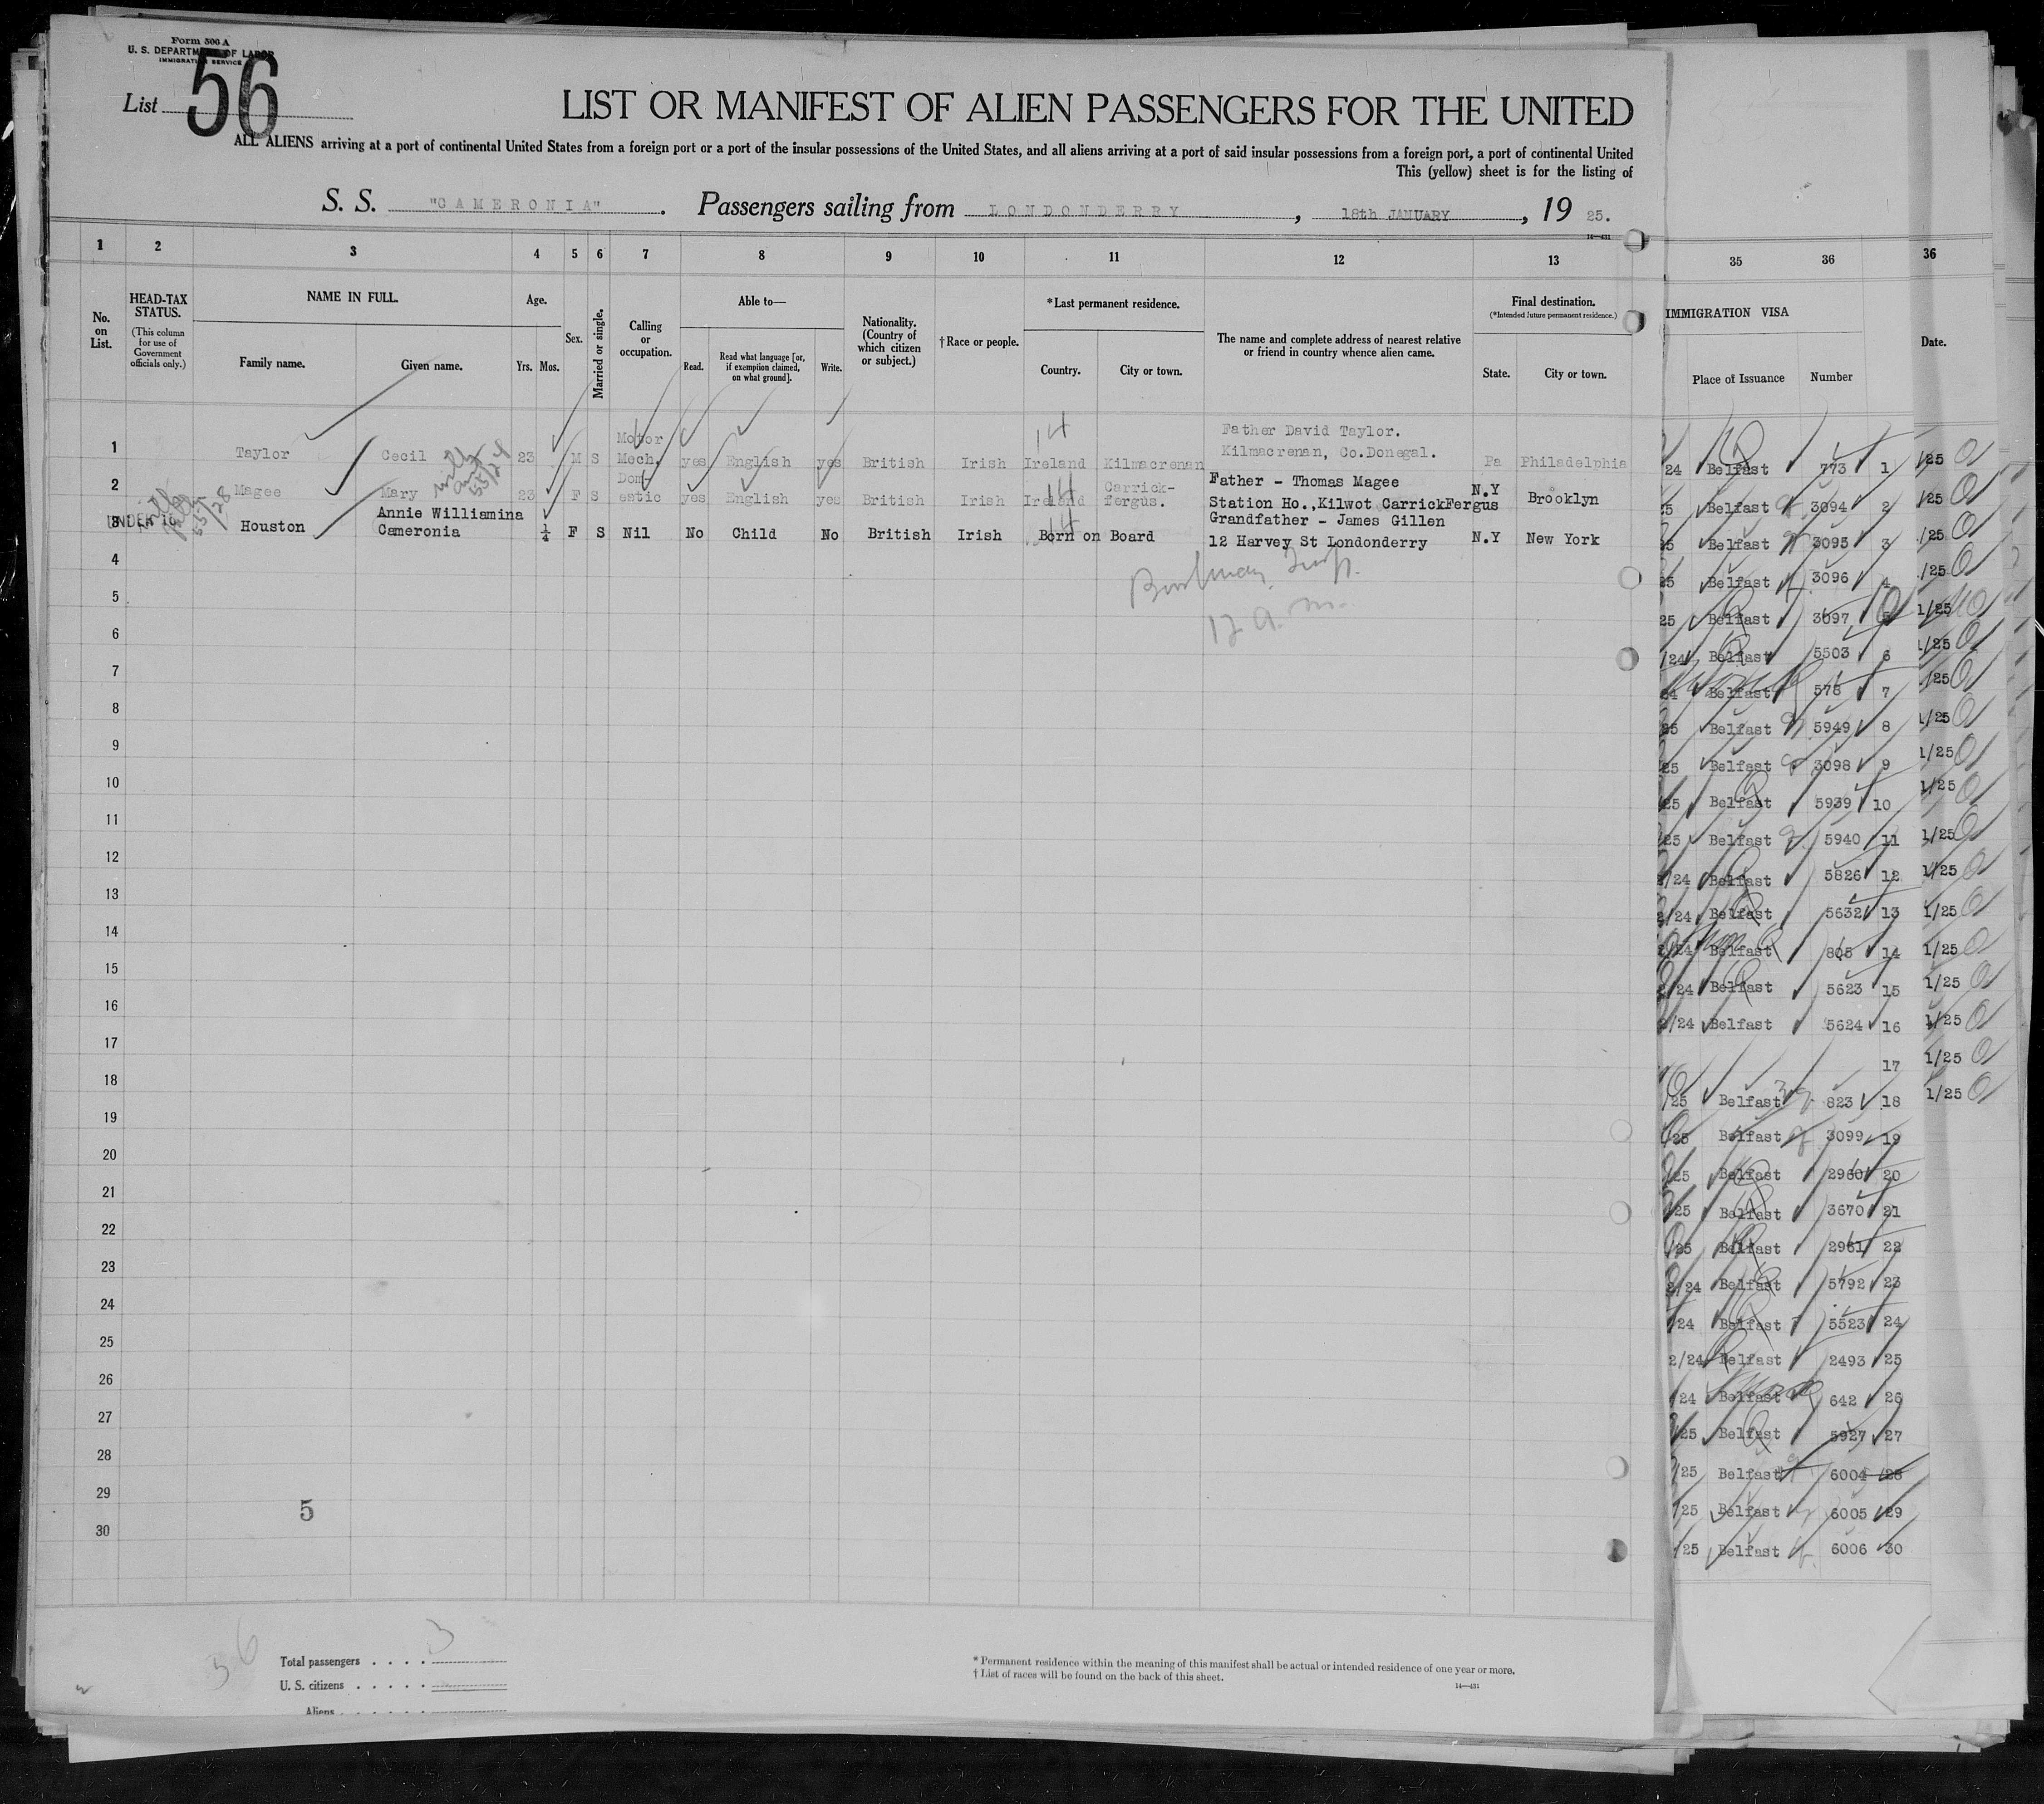 Form 500 A
U. S. DEPARTMENT OF LABOR
IMMIGRATION SERVICE
List 56
LIST OR MANIFEST OF ALIEN PASSENGERS FOR THE UNITED
ALL ALIENS arriving at a port of continental United States from a foreign port or a port of the insular possessions of the United States, and all aliens arriving at a port of said insular possessions from a foreign port, a port of continental United
This (yellow) sheet is for the listing of
S. S. "CAMERONIA". Passengers sailing from LONDONDERRY, 18th JANUARY, 19 25.
14—431
1 2 3 4 5 6 7 8 9 10 11 12 13
No. on List.
HEAD-TAX STATUS.
(This column for use of Government officials only.)
NAME IN FULL.
Family name. Given name.
Age.
Yrs. Mos.
Sex.
Married or single.
Calling or occupation.
Able to—
Read. Read what language [or, if exemption claimed, on what ground]. Write.
Nationality. (Country of which citizen or subject.)
†Race or people.
*Last permanent residence.
Country. City or town.
The name and complete address of nearest relative or friend in country whence alien came.
Final destination.
(*Intended future permanent residence.)
State. City or town.
1 Taylor Cecil 23 M S Motor Mech. yes English yes British Irish Ireland Kilmacrenan Father David Taylor. Kilmacrenan, Co.Donegal. Pa Philadelphia
2 Magee Mary 23 F S Dom-estic yes English yes British Irish Ireland Carrick-fergus. Father - Thomas Magee Station Ho.,Kilwot CarrickFergus N.Y Brooklyn
UNDER 16
3 Houston Annie Williamina Cameronia ¼ F S Nil No Child No British Irish Born on Board Grandfather - James Gillen 12 Harvey St Londonderry N.Y New York
14
14
14
4
5
6
7
8
9
10
11
12
13
14
15
16
17
18
19
20
21
22
23
24
25
26
27
28
29
30
5
36
Total passengers . . . . 3
U. S. citizens . . . . .
Aliens . . . . . .
* Permanent residence within the meaning of this manifest shall be actual or intended residence of one year or more.
† List of races will be found on the back of this sheet.
14—431
35 36 36
IMMIGRATION VISA
Place of Issuance Number Date.
24 Belfast 773 1 1/25
25 Belfast 3094 2 1/25
25 Belfast 3095 3 1/25
25 Belfast 3096 4 1/25
25 Belfast 3097 5 1/25
/24 Belfast 5503 6 1/25
24 Belfast 578 7 1/25
25 Belfast 5949 8 1/25
25 Belfast 3098 9 1/25
25 Belfast 5939 10 1/25
25 Belfast 5940 11 1/25
/24 Belfast 5826 12 1/25
2/24 Belfast 5632 13 1/25
2/24 Belfast 805 14 1/25
2/24 Belfast 5623 15 1/25
2/24 Belfast 5624 16 1/25
17 1/25
/25 Belfast 823 18 1/25
25 Belfast 3099 19
/25 Belfast 2960 20
/25 Belfast 3670 21
/25 Belfast 2961 22
2/24 Belfast 5792 23
/24 Belfast 5523 24
2/24 Belfast 2493 25
/24 Belfast 642 26
/25 Belfast 5927 27
/25 Belfast 6004 28
/25 Belfast 6005 29
/25 Belfast 6006 30